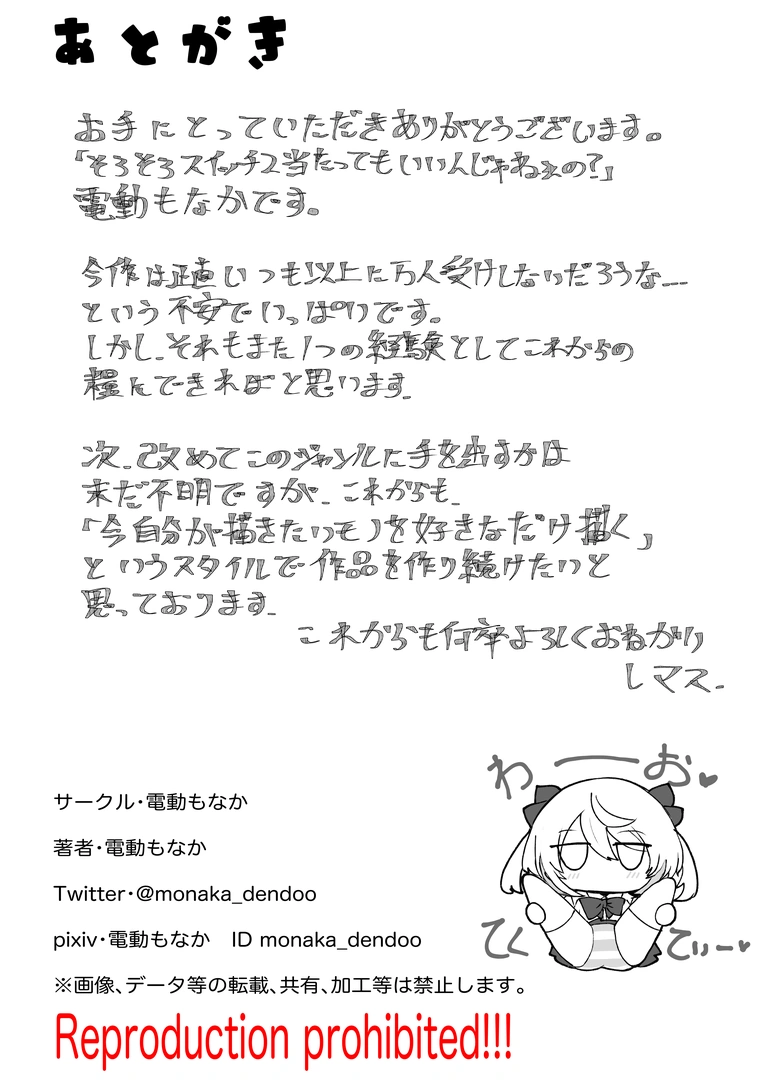 あとがき
お手にとっていただきありがとうございます。
「そろそろスイッチ2当たってもいいんじゃねぇの?」
電動もなかです。
今作は正直いつも以上に万人受けしないだろうな...
という不安でいっぱいです。
しかし、それもまた1つの経験としてこれからの
糧にできればと思います。
次、改めてこのジャンルに手を出すかは
未だ不明ですが、これからも、
「今自分が描きたいモノを好きなだけ描く」
というスタイルで作品を作り続けたいと
思っております。
これからも何卒よろしくおねがい
しマス。
わーお♥
てくてぃー♥
サークル・電動もなか
著者・電動もなか
Twitter・@monaka_dendoo
pixiv・電動もなか ID monaka_dendoo
※画像、データ等の転載、共有、加工等は禁止します。
Reproduction prohibited!!!